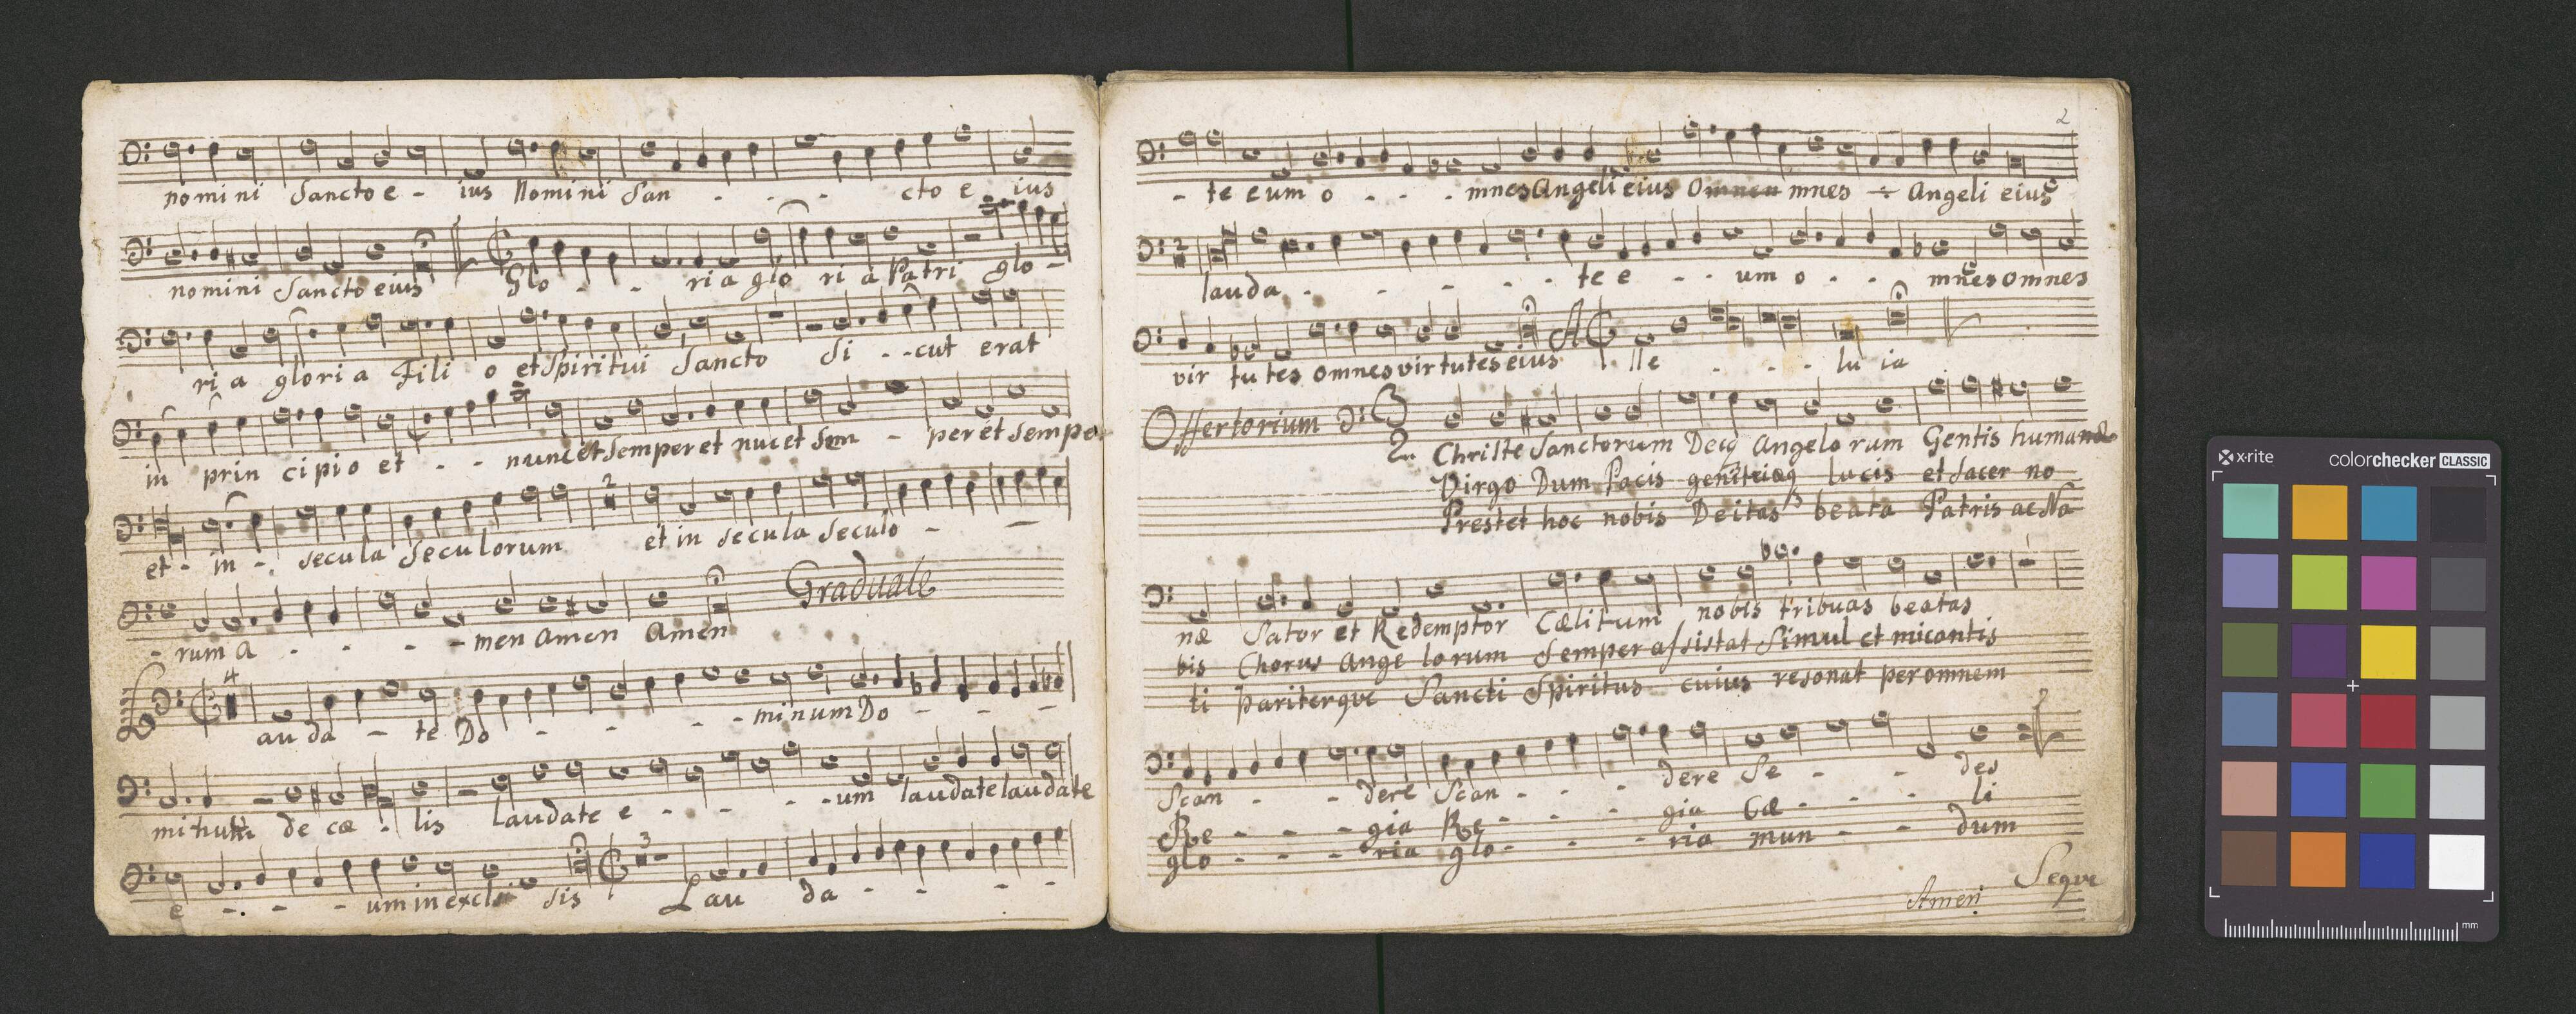 nomini Sancto e - ius Nomini San - - - - cto e ius
nomini Sancto eius Glo - - - ria glo ria Patri glo -
ria gloria Fili o et Spiritui Sancto Si - - cut erat
in prin cipio et - - nunc et semper et nuc et sem - per et sempe
et - in - secula seculorum 2 et in secula seculo - -
- rum A - - - - men amen amen Graduale
4
Lau da - te Do - - - - minum Do - - -
mi num de cæ - lis laudate e - - - - - um laudate laudate
3
e - - - - um in excel sis Lau da - - - -
2
- te eum o - - - - mnes Angeli eius Omnen mnes ÷ Angeli eius
2
lauda - - - - - te e - - um o - - mnes omnes
vir tutes omnes virtutes eius A lle - - - - lu ia
Offertorium Christe Sanctorum Decq Angelo rum Gentis humanæ
2.
Virgo Dum Pacis lucis et sacer no
Prestet hoc nobis Deitas beata Patris ac Na
næ Sator et Redemptor Cælitum nobis tribuas beatas
bis Chorus Ange lorum Semper assistat Simul et micantis
ti pariterque Sancti Spiritus cuius resonat per omnem
Scan - - - dere Scan - - - - dere Se - - des
Re - - - - gia Re - - - - gia Cæ - - - li
glo - - - - ria glo - - - ria mun - - dum
Amen Seque
x-rite colorchecker CLASSIC
mm